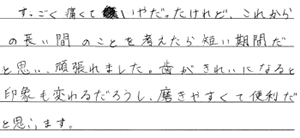 すごく痛くていやだったけれど、これから
の長い間のことを考えたら短い期間だ
と思い、頑張れました。歯がきれいになると
印象も変わるだろうし、磨きやすくて便利だ
と思います。